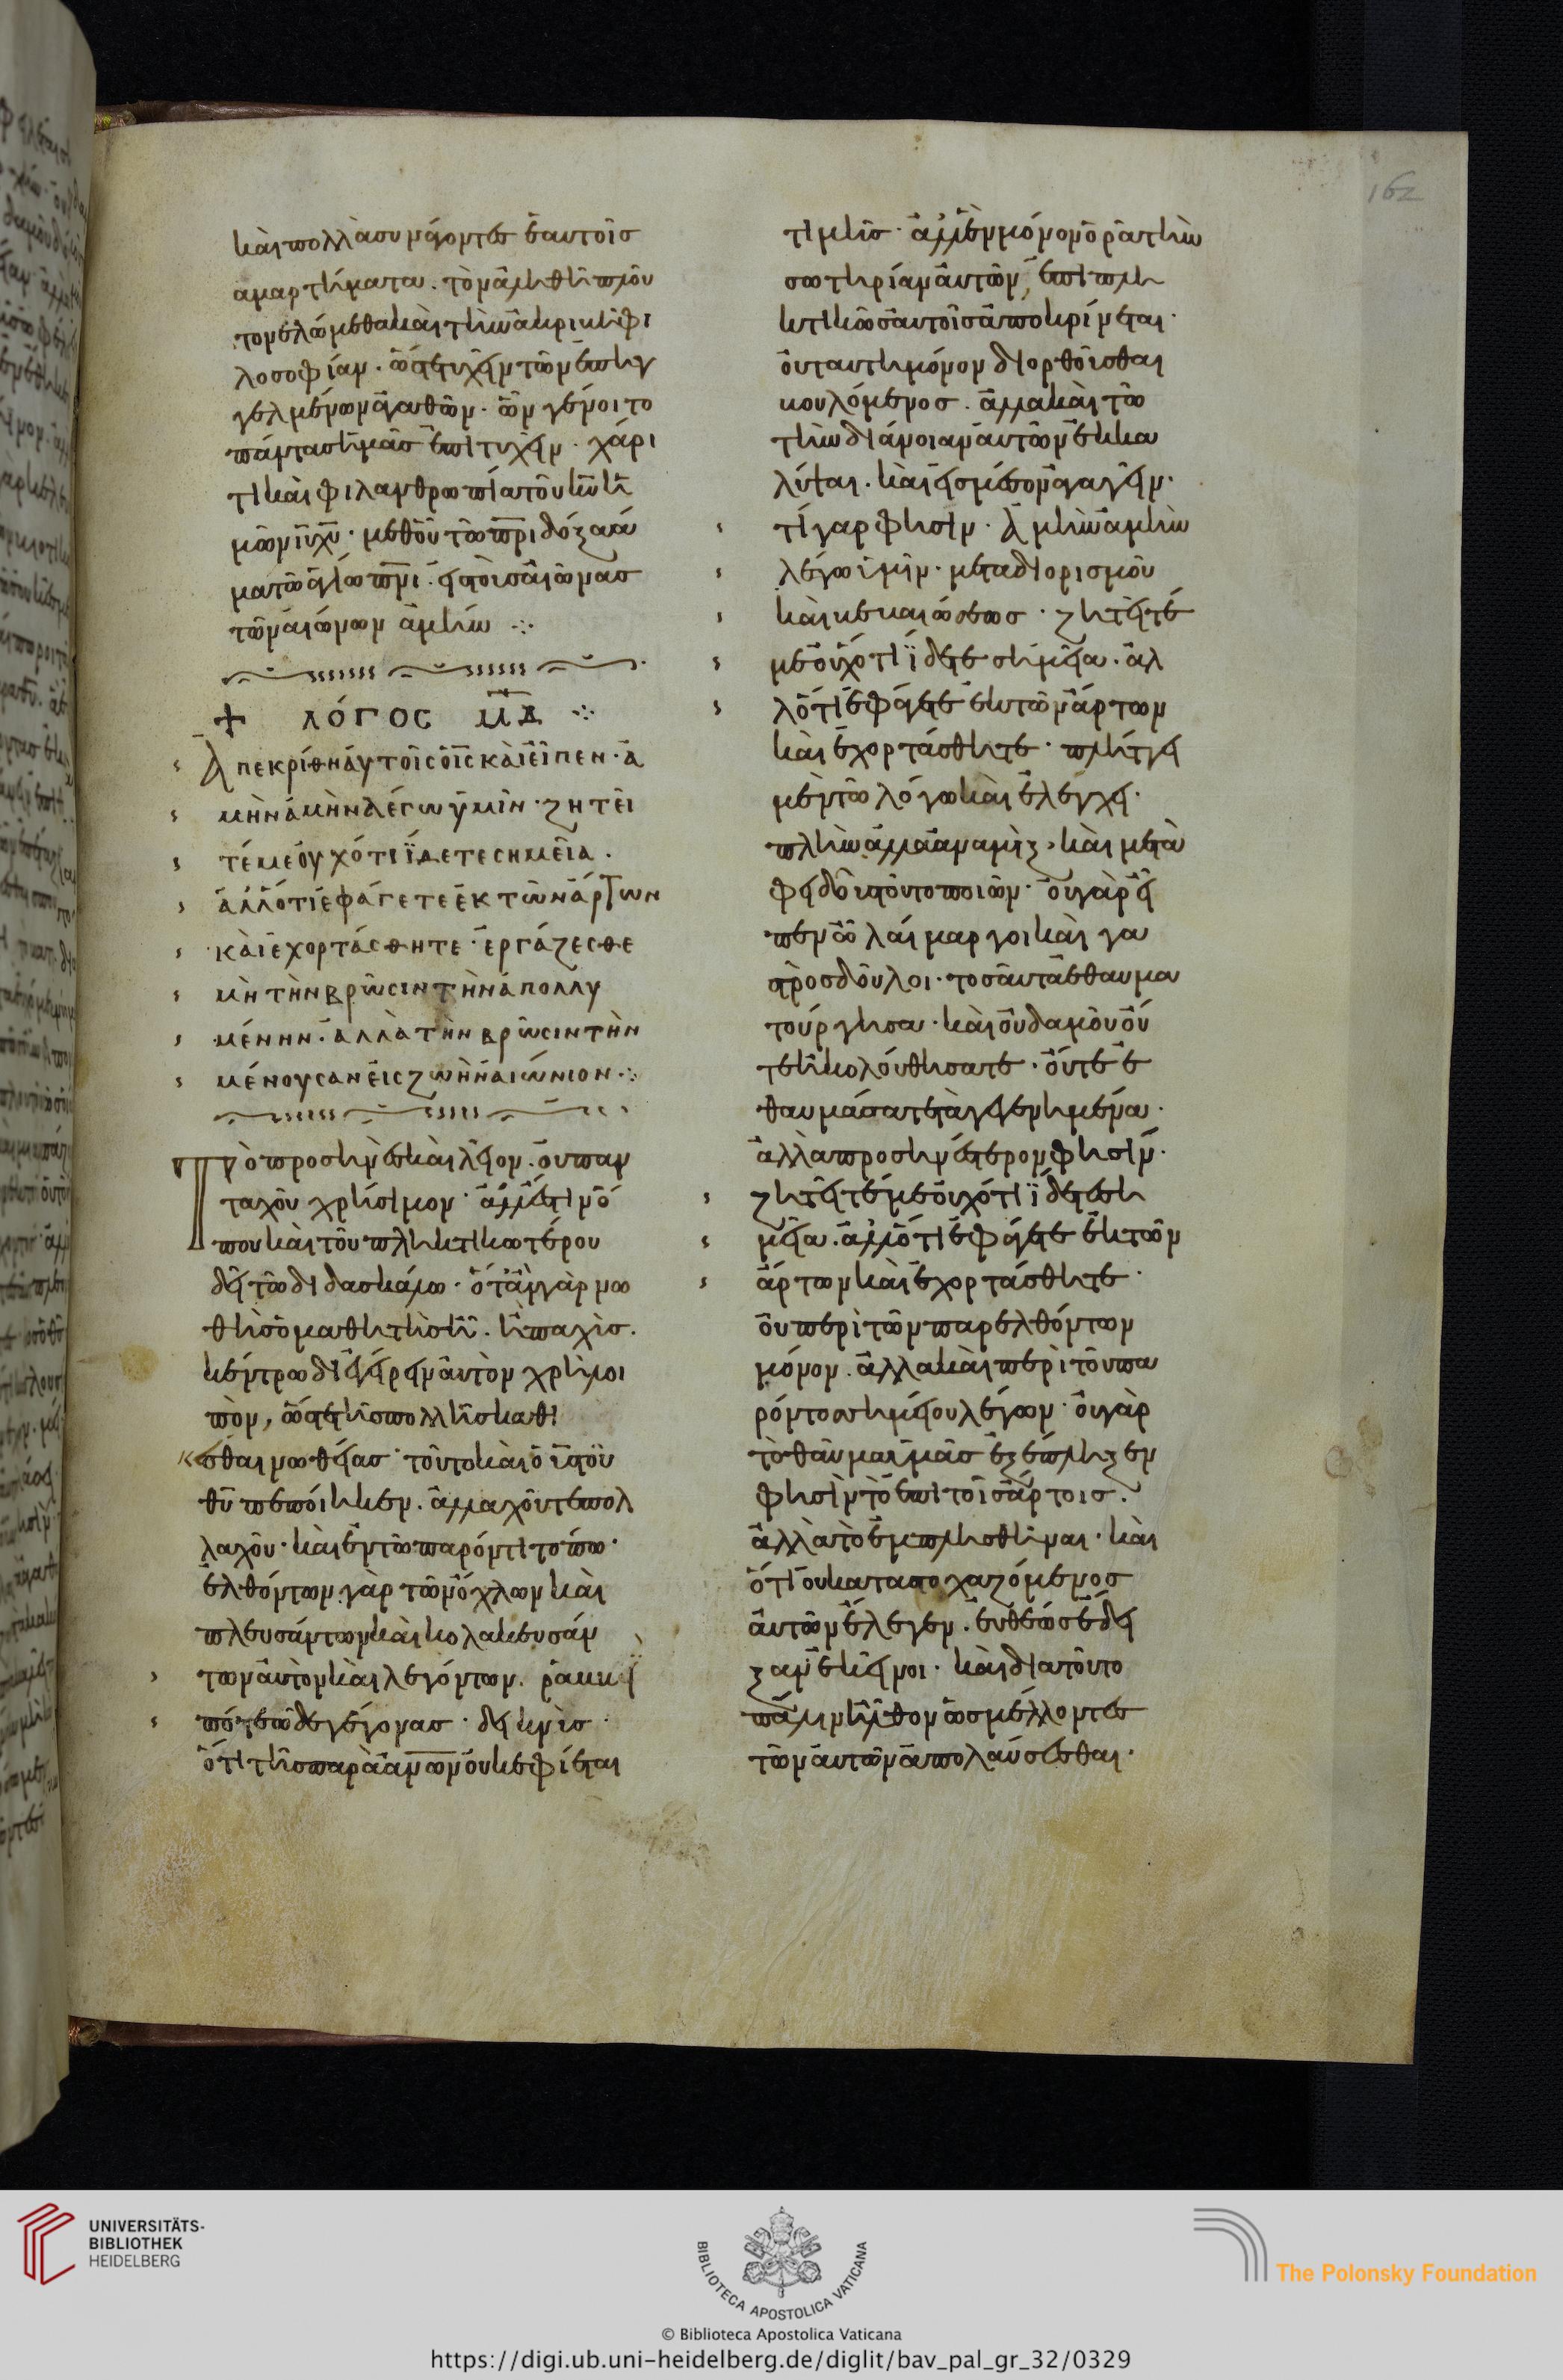 καὶ πολλὰ συνάγοντες ἑαυτοῖς
αμαρτήματα. τὸν ἀληθῆ πλοῦ
τον ἑλώμεθα καὶ τὴν ἀκριβῆ φι
λοσοφίαν. ὥστε τυχεῖν τῶν ἐπηγ
γελμένων ἀγαθῶν. ὧν γένοιτο
πάντας ἡμᾶς ἐπιτυχεῖν. χάρι
τι καὶ φιλανθρωπία τοῦ κ̅υ̅ ἡ
μῶν ι̅υ̅ χ̅υ̅. μεθ οὗ τῶ π̅ρ̅ι̅ δόξα ἅ
μα τῶ ἁγίω π̅ν̅ι̅. εἰς τοὺς αἰῶνας
τῶν αἰώνων ἀμήν ⁘
+ ΛΌΓΟC ΜΔ ⁘
Ἀπεκρίθη αὐτοῖς ὁ ι̅ς̅ καὶ εἶπεν. ἀ
μὴν ἀμὴν λέγω ὑμῖν. ζητεῖ
τέ με οὐχ ὅτι ἴδετε σημεῖα.
ἀλλ ὅτι ἐφάγετε ἐκ τῶν ἄρτων
καὶ ἐχορτάσθητε. ἐργάζεσθε
μὴ τὴν βρῶσιν τὴν ἀπολλυ
μένην. ἀλλὰ τὴν βρῶσιν τὴν
μένουσαν εἰς ζωὴν αἰώνιον ⁘
Τὸ προσηνὲς καὶ λεῖον. οὐ παν
ταχοῦ χρήσιμον. ἀλλ ἔστιν ὅ
που καὶ τοῦ πληκτικωτέρου
δεῖ τῶ διδασκάλω. ὅταν γὰρ νω
θὴς ὁ μαθητὴς ἦ. ἢ παχὺς.
κέντρω διεγείρειν αὐτὸν χρὴ λοι
πὸν, ὥστε τῆς πολλῆς καθί
εσθαι νωθείας. τοῦτο καὶ ὁ υ̅ς̅ τοῦ
θ̅υ̅ πεποίηκεν. ἀλλαχοῦ τε πολ
λαχοῦ. καὶ ἐν τῶ παρόντι τόπω.
ἐλθόντων γὰρ τῶν ὄχλων καὶ
πλευσάντων καὶ κολακευσάν
των αὐτὸν καὶ λεγόντων. ῥαββεὶ
πότε ὧδε γέγονας. δεικνὺς
ὅτι τῆς παρὰ α̅ν̅ω̅ν̅ οὐκ ἐφίεται
162
τιμῆς. ἀλλ ἓν μόνον ὁρᾶ τὴν
σωτηρίαν αὐτῶν, ἐπιπλη
κτικῶς αὐτοῖς ἀποκρίνεται.
οὐ ταύτη μόνον διορθοῦσθαι
βουλόμενος. ἀλλα καὶ τῶ
τὴν διάνοιαν αὐτῶν ἐκκα
λύψαι. καὶ εἰς μέσον ἀγαγεῖν.
τί γαρ φησιν. ἀμὴν ἀμὴν
λέγω ὑμῖν. μετα διορισμοῦ
καὶ βεβαιώσεως. ζητεῖτέ
με οὐχ ὅτι ἴδετε σημεῖα. ἀλ
λ ὅτι ἐφάγετε ἐκ τῶν ἄρτων
καὶ ἐχορτάσθητε. πλήττει
μὲν τῶ λόγω καὶ ἐλέγχει.
πλὴν ἀλλα ἀναμὶξ, καὶ μετὰ
φειδοῦς τοῦτο ποιῶν. οὐ γὰρ εἶ
πεν ὦ λαίμαργοι καὶ γα
στρόσδουλοι. τοσαῦτα ἐθαυμα
τούργησα. καὶ οὐδαμοῦ οὔ
τε ἠκολούθησατε. οὔτε ἐ
θαυμάσατε τὰ γεγενημένα.
ἀλλὰ προσηνέστερον φησίν.
ζητεῖτέ με οὐχ ὅτι ἴδετε ση
μεῖα. ἀλλ ὅτι ἐφάγετε ἐκ τῶν
ἄρτων καὶ ἐχορτάσθητε.
οὐ περὶ τῶν παρελθόντων
μόνον. ἀλλα καὶ περὶ τοῦ πα
ρόντος σημείου λέγων. οὐ γὰρ
τὸ θαῦμα ὑμᾶς ἐξέπληξεν
φησὶν τὸ ἐπι τοῖς ἄρτοις.
ἀλλὰ τὸ ἐμπλησθῆναι. καὶ
ὅτι οὐ καταστοχαζόμενος
αὐτῶν ἔλεγεν. εὐθέως ἔδει
ξαν ἐκεῖνοι. καὶ δια τοῦτο
πάλιν ἦλθον ὡς μέλλοντες
τῶν αὐτῶν ἀπολαύσεσθαι.
UNIVERSITÄTS-
BIBLIOTHEK
HEIDELBERG
BIBLIOTECA APOSTOLICA VATICANA
The Polonsky Foundation
© Biblioteca Apostolica Vaticana
https://digi.ub.uni-heidelberg.de/diglit/bav_pal_gr_32/0329